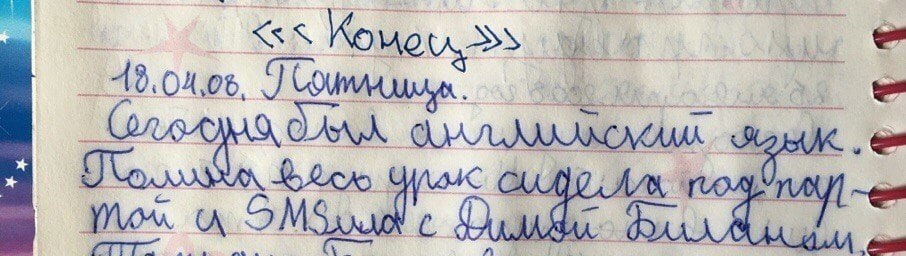 <<< Конец >>>
18.04.08. Пятница.
Сегодня был английский язык.
Полина весь урок сидела под пар-
той и SMSила с Димой Биланом.